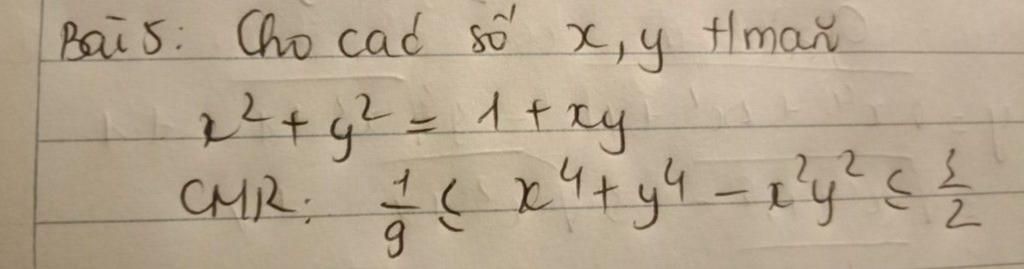 Bài 5: Cho các số x, y t/mãn
x² + y² = 1 + xy
CMR: 1/9 ≤ x⁴ + y⁴ - x²y² ≤ 3/2